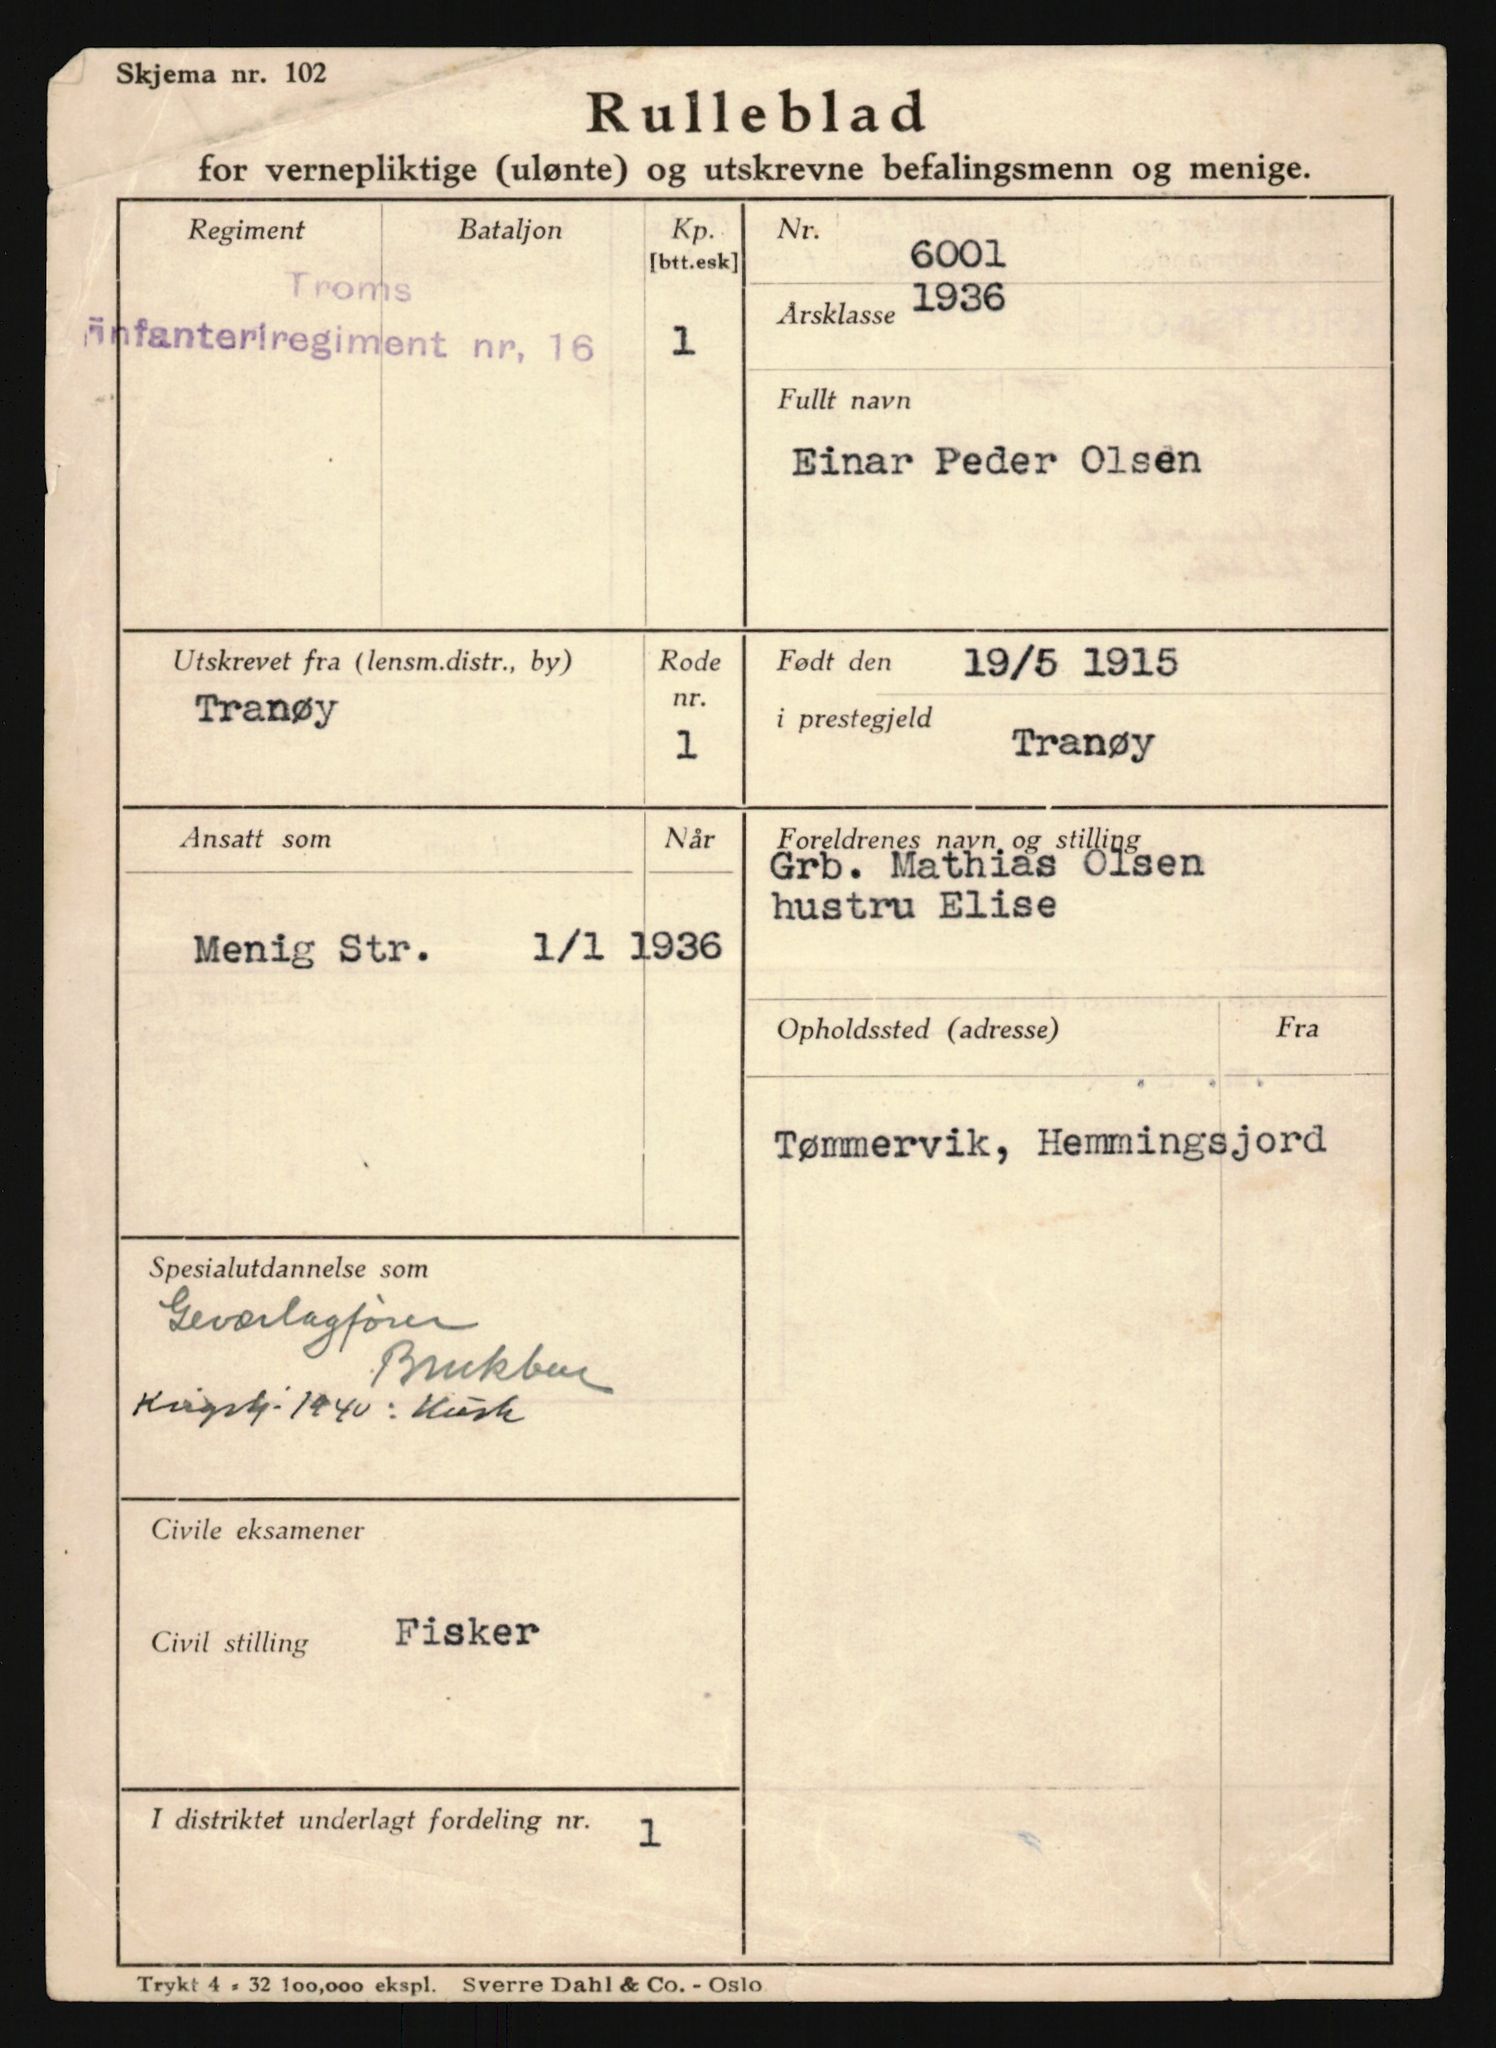 Skjema nr. 102
Rulleblad
for vernepliktige (ulønte) og utskrevne befalingsmenn og menige.
Regiment Bataljon Kp.
[btt.esk]
Troms
infanteriregiment nr. 16 1
Nr. 6001
Årsklasse 1936
Fullt navn
Einar Peder Olsen
Utskrevet fra (lensm.distr., by) Rode
nr.
Tranøy
1
Født den 19/5 1915
i prestegjeld Tranøy
Ansatt som Når
Menig Str. 1/1 1936
Foreldrenes navn og stilling
Grb. Mathias Olsen
hustru Elise
Opholdssted (adresse) Fra
Tømmervik, Hemmingsjord
Spesialutdannelse som
Geværlagfører
Brukbar
1940:
Civile eksamener
Civil stilling Fisker
I distriktet underlagt fordeling nr. 1
Trykt 4 - 32 100,000 ekspl. Sverre Dahl & Co. - Oslo